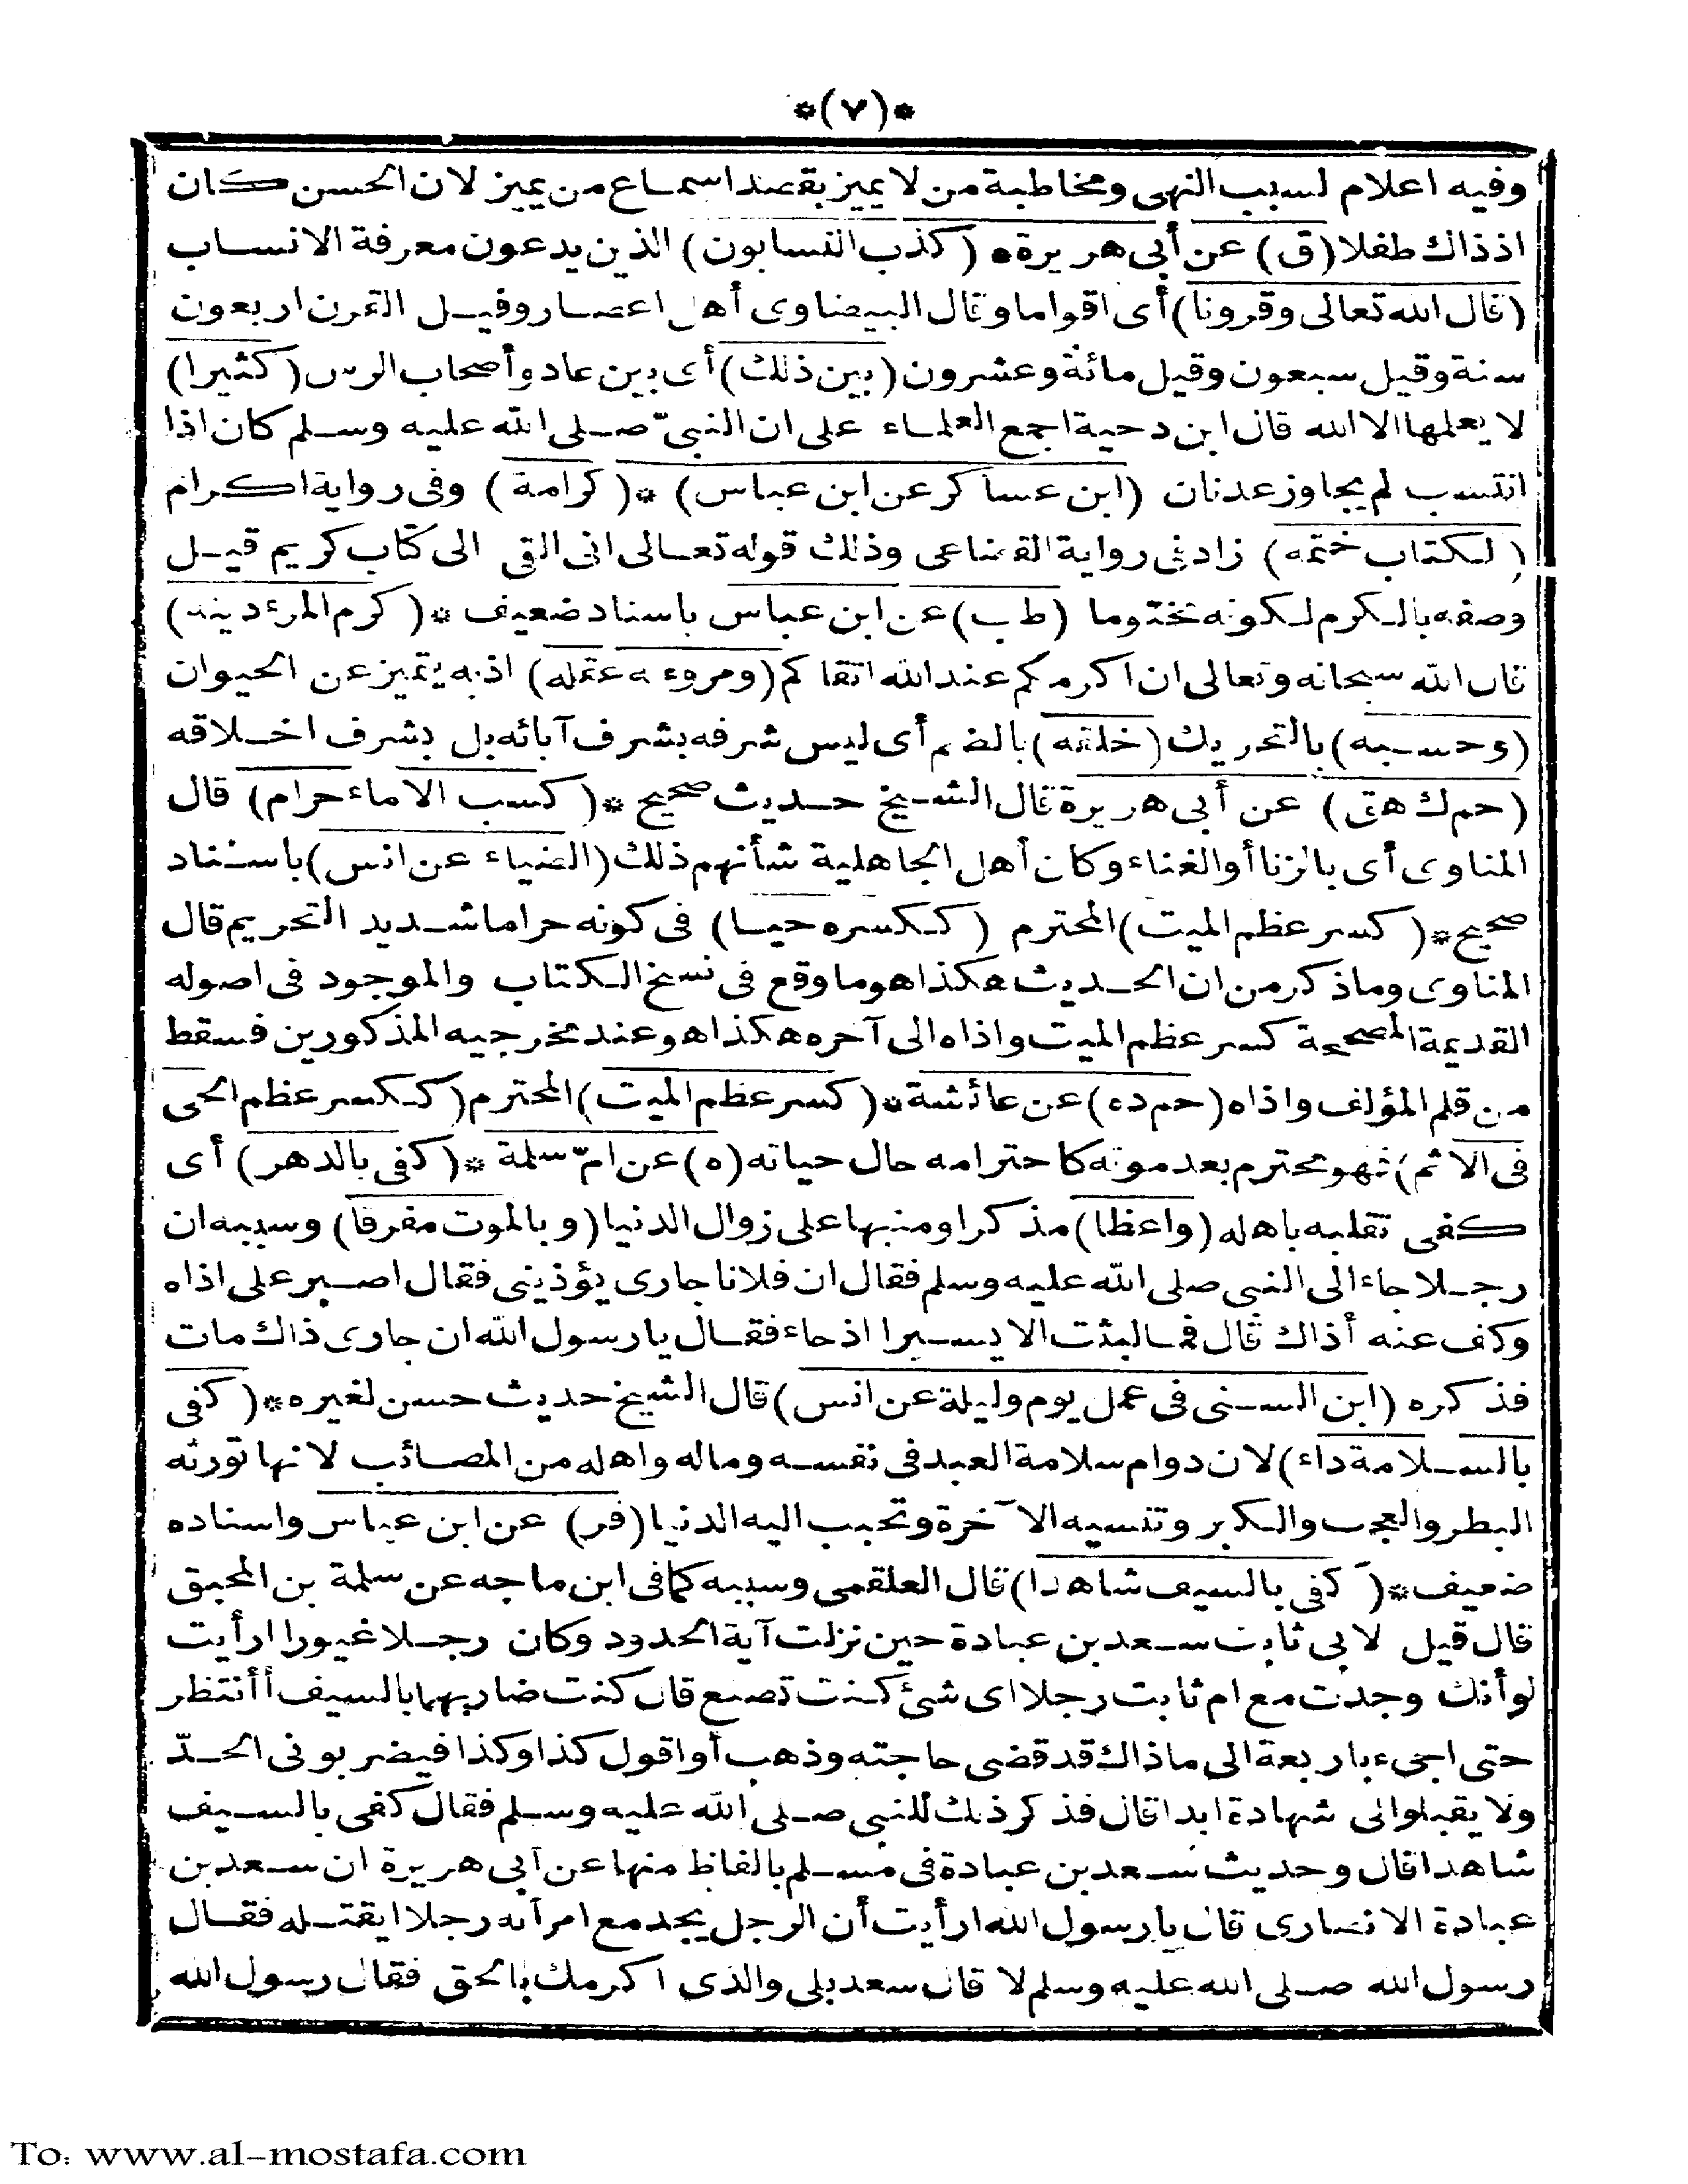 *(٧)*
وفيه اعلام لسبب النهى ومخاطبة من لا يميز بقصد اسماع من يميز لان الحسن كان
اذ ذاك طفلا (ق) عن أبى هريرة * (كذب النسابون) الذين يدعون معرفة الانساب
(قال الله تعالى وقرونا) أى اقواما وقال البيضاوى أهل اعصار وقيل القرن اربعون
سنة وقيل سبعون وقيل مائة وعشرون (بين ذلك) أى بين عاد وأصحاب الرس (كثيرا)
لا يعلمها الا الله قال ابن دحية اجمع العلماء على ان النبىّ صلى الله عليه وسلم كان اذا
انتسب لم يجاوز عدنان (ابن عساكر عن ابن عباس) *(كرامة) وفى رواية اكرام
(لكتاب ختمه) زاد فى رواية القضاعى وذلك قوله تعالى انى القى الى كتاب كريم قيل
وصفه بالكرم لكونه مختوما (طب) عن ابن عباس باسناد ضعيف *(كرم المرء دينه)
قال الله سبحانه وتعالى ان اكرمكم عند الله اتقاكم (ومروءته عقله) اذ به يتميز عن الحيوان
(وحسبه) بالتحريك (خلقه) بالضم أى ليس شرفه بشرف آبائه بل بشرف اخلاقه
(حم ك هق) عن أبى هريرة قال الشيخ حديث صحيح *(كسب الاماء حرام) قال
المناوى أى بالزنا أو الغناء وكان أهل الجاهلية شأنهم ذلك (الضياء عن انس) باسناد
صحيح *(كسر عظم الميت) المحترم (ككسره حيا) فى كونه حراما شديد التحريم قال
المناوى وما ذكر من ان الحديث هكذا هو ما وقع فى نسخ الكتاب والموجود فى اصوله
القديمة المصححة كسر عظم الميت واذاه الى آخره هكذا هو عند مخرجيه المذكورين فسقط
من قلم المؤلف واذاه (حم د ه) عن عائشة *(كسر عظم الميت) المحترم (ككسر عظم الحى
فى الاثم) فهو محترم بعد موته كاحترامه حال حياته (ه) عن امّ سلمة *(كفى بالدهر) أى
كفى تقلبه باهله (واعظا) مذكرا ومنبها على زوال الدنيا (وبالموت مفرقا) وسببه ان
رجلا جاء الى النبى صلى الله عليه وسلم فقال ان فلانا جارى يؤذينى فقال اصبر على اذاه
وكف عنه أذاك قال فما لبثت الا يسيرا اذ جاء فقال يا رسول الله ان جارى ذاك مات
فذكره (ابن السنى فى عمل يوم وليلة عن انس) قال الشيخ حديث حسن لغيره *(كفى
بالسلامة داء) لان دوام سلامة العبد فى نفسه وماله واهله من المصائب لانها تورثه
البطر والعجب والكبر وتنسيه الآخرة وتحبب اليه الدنيا (فر) عن ابن عباس واسناده
ضعيف *(كفى بالسيف شاهدا) قال العلقمى وسببه كما فى ابن ماجه عن سلمة بن المحبق
قال قيل لابى ثابت سعد بن عبادة حين نزلت آية الحدود وكان رجلا غيورا ارأيت
لو أنك وجدت مع ام ثابت رجلا اى شئ كنت تصنع قال كنت ضاربهما بالسيف أأنتظر
حتى اجىء باربعة الى ما ذاك قد قضى حاجته وذهب أو اقول كذا وكذا فيضربونى الحدّ
ولا يقبلوا لى شهادة ابدا قال فذكر ذلك للنبى صلى الله عليه وسلم فقال كفى بالسيف
شاهدا قال وحديث سعد بن عبادة فى مسلم بالفاظ منها عن أبى هريرة ان سعد بن
عبادة الانصارى قال يا رسول الله ارأيت أن الرجل يجد مع امرأته رجلا ايقتله فقال
رسول الله صلى الله عليه وسلم لا قال سعد بلى والذى اكرمك بالحق فقال رسول الله
To: www.al-mostafa.com